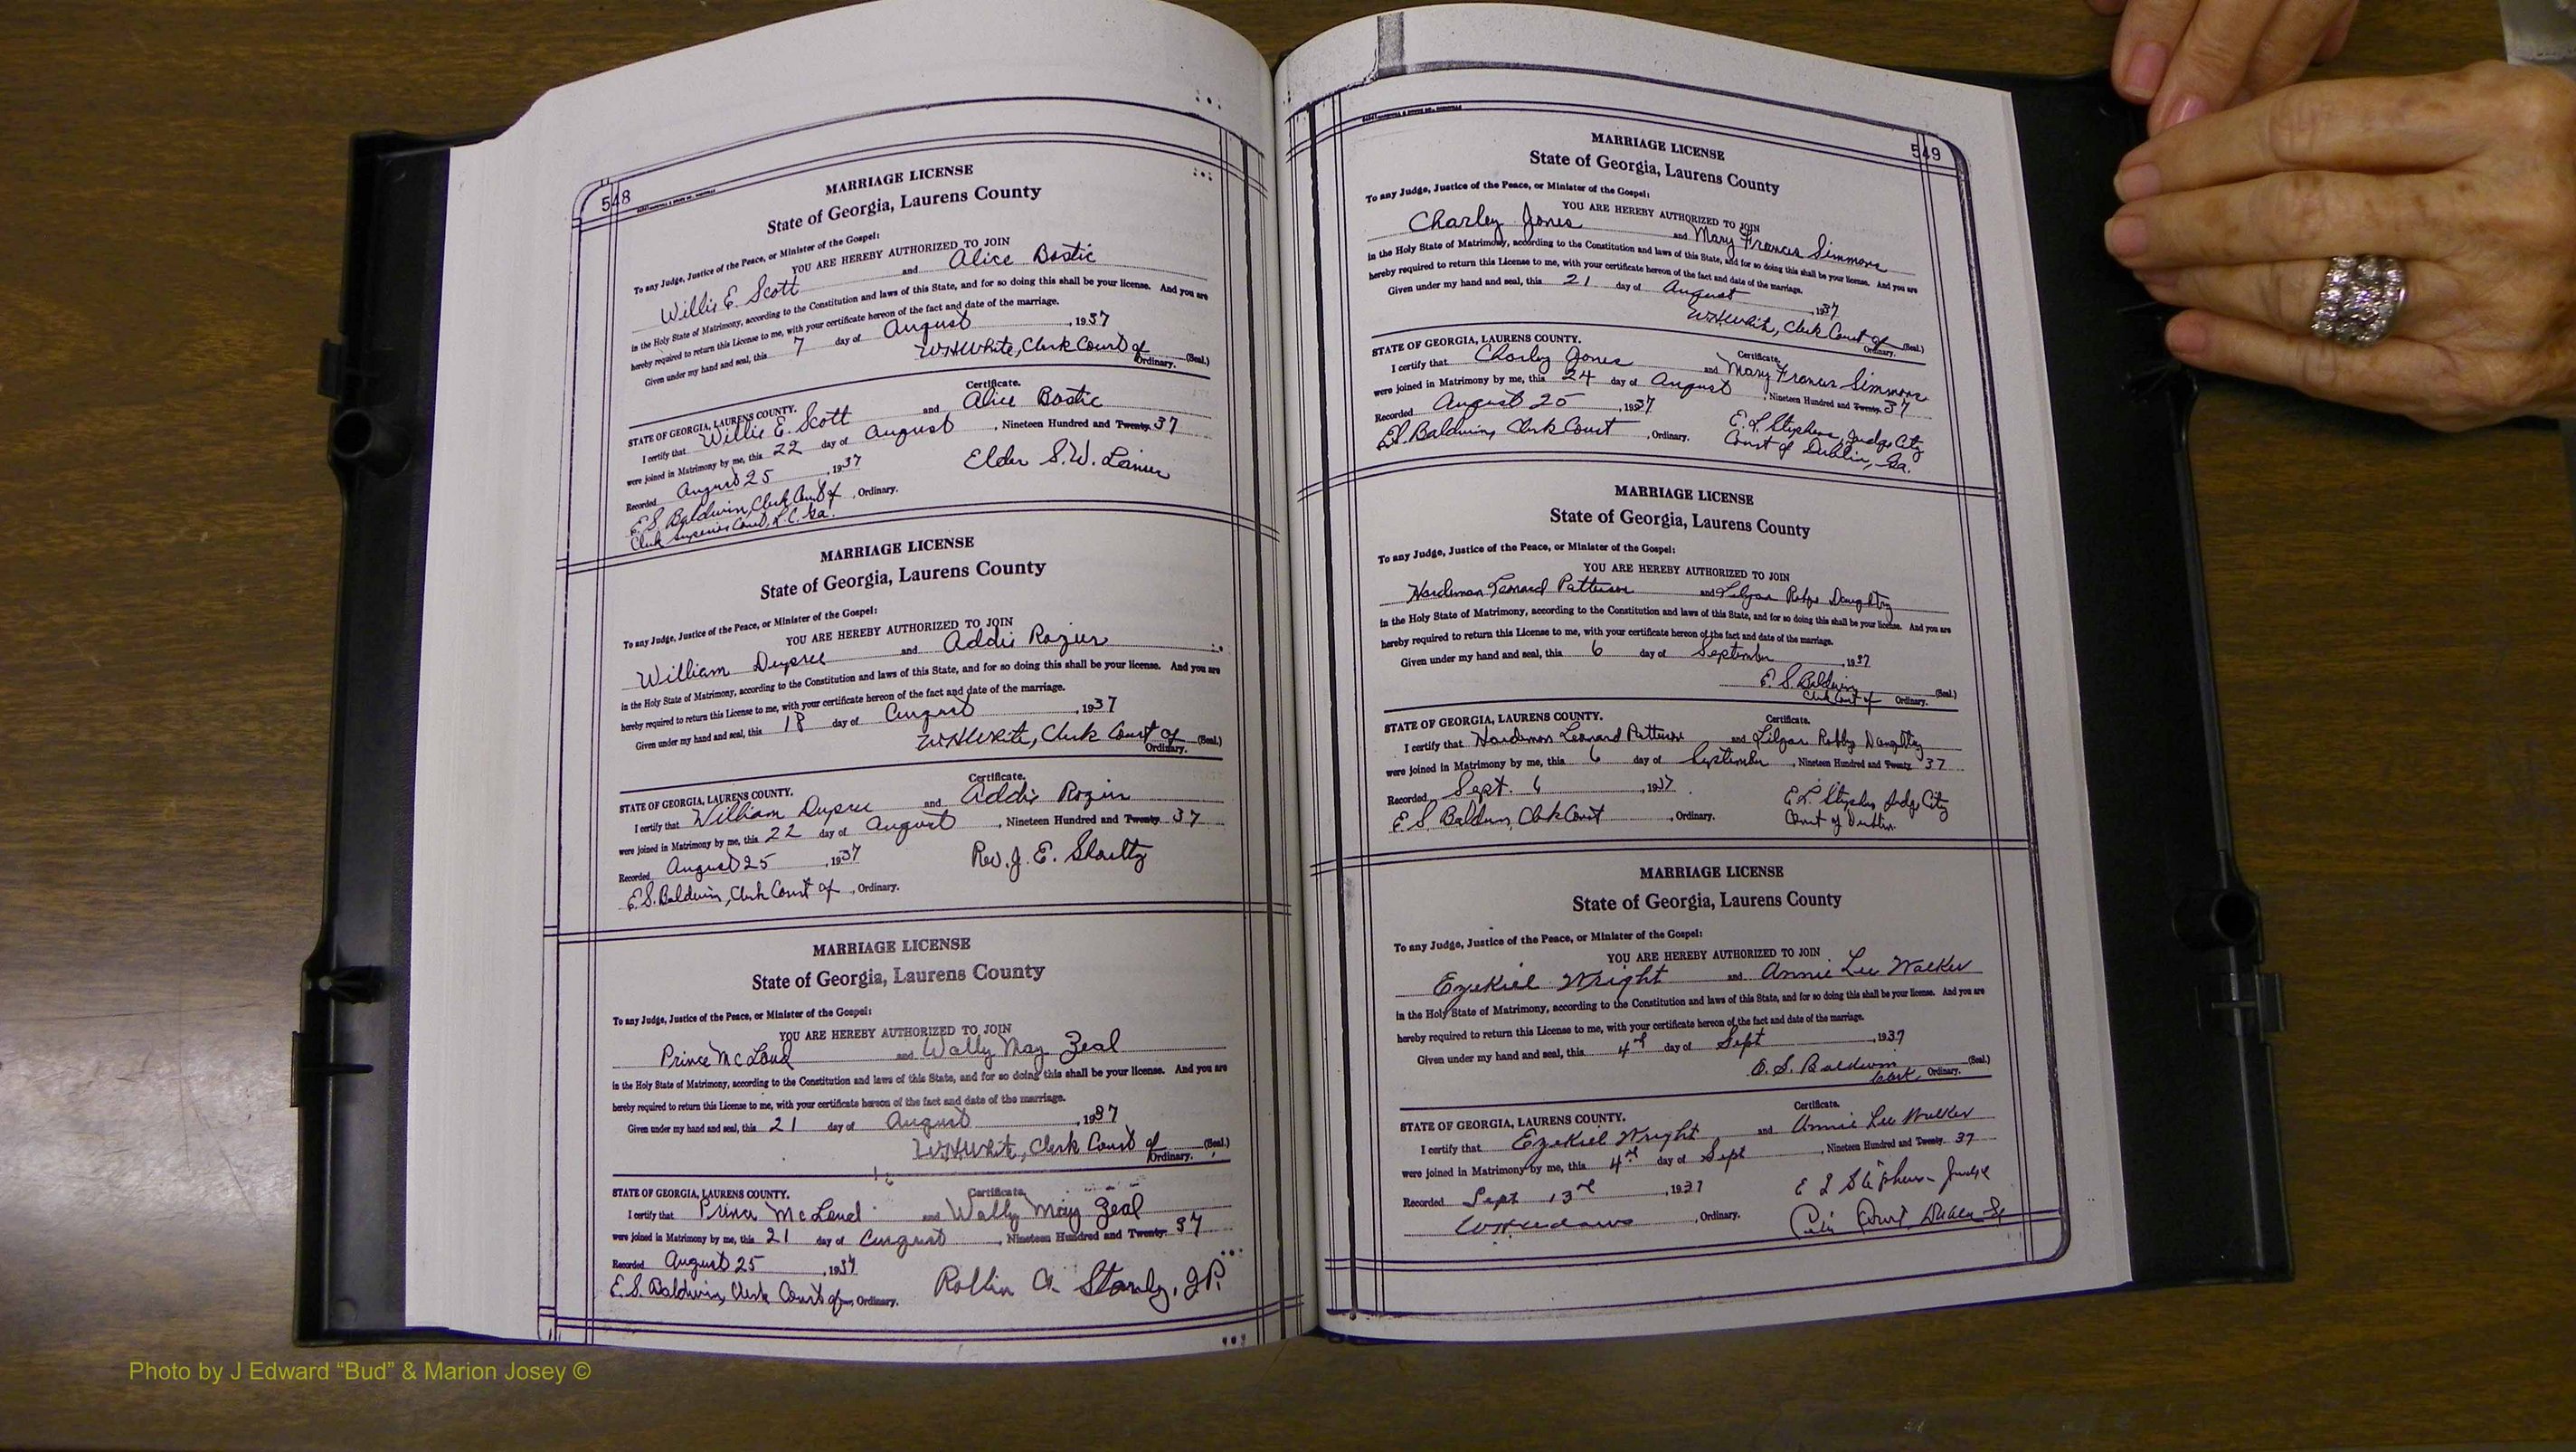 548
MARRIAGE LICENSE
State of Georgia, Laurens County
To any Judge, Justice of the Peace, or Minister of the Gospel:
YOU ARE HEREBY AUTHORIZED TO JOIN
Willie E. Scott and Alice Bostic
in the Holy State of Matrimony, according to the Constitution and laws of this State, and for so doing this shall be your license. And you are
hereby required to return this License to me, with your certificate hereon of the fact and date of the marriage.
Given under my hand and seal, this 7 day of August, 1937
W.H. White, Clerk Court of (Seal.)
Ordinary.
Certificate.
STATE OF GEORGIA, LAURENS COUNTY.
I certify that Willie E. Scott and Alice Bostic
were joined in Matrimony by me, this 22 day of August, Nineteen Hundred and Twenty 37
Recorded August 25, 1937
Elder S.W.
E.S. Baldwin, Clerk Court of, Ordinary.
Clerk Superior Court, L.C. Ga.
MARRIAGE LICENSE
State of Georgia, Laurens County
To any Judge, Justice of the Peace, or Minister of the Gospel:
YOU ARE HEREBY AUTHORIZED TO JOIN
William Dupree and Addie Rozier
in the Holy State of Matrimony, according to the Constitution and laws of this State, and for so doing this shall be your license. And you are
hereby required to return this License to me, with your certificate hereon of the fact and date of the marriage.
Given under my hand and seal, this 18 day of August, 1937
W.H. White, Clerk Court of (Seal.)
Ordinary.
Certificate.
STATE OF GEORGIA, LAURENS COUNTY.
I certify that William Dupree and Addie Rozier
were joined in Matrimony by me, this 22 day of August, Nineteen Hundred and Twenty 37
Recorded August 25, 1937
Rev. J. E.
E.S. Baldwin, Clerk Court of, Ordinary.
MARRIAGE LICENSE
State of Georgia, Laurens County
To any Judge, Justice of the Peace, or Minister of the Gospel:
YOU ARE HEREBY AUTHORIZED TO JOIN
Prince McLoud and Wally May Zeal
in the Holy State of Matrimony, according to the Constitution and laws of this State, and for so doing this shall be your license. And you are
hereby required to return this License to me, with your certificate hereon of the fact and date of the marriage.
Given under my hand and seal, this 21 day of August, 1937
W.H. White, Clerk Court of (Seal.)
Ordinary.
Certificate.
STATE OF GEORGIA, LAURENS COUNTY.
I certify that Prince McLoud and Wally May Zeal
were joined in Matrimony by me, this 21 day of August, Nineteen Hundred and Twenty 37
Recorded August 25, 1937
E.S. Baldwin, Clerk Court of, Ordinary.
Rollin A. Stanly, J.P.
549
MARRIAGE LICENSE
State of Georgia, Laurens County
To any Judge, Justice of the Peace, or Minister of the Gospel:
YOU ARE HEREBY AUTHORIZED TO JOIN
Charley Jones and Mary Francis Simmons
in the Holy State of Matrimony, according to the Constitution and laws of this State, and for so doing this shall be your license. And you are
hereby required to return this License to me, with your certificate hereon of the fact and date of the marriage.
Given under my hand and seal, this 21 day of August, 1937
W.H. White, Clerk Court of (Seal.)
Ordinary.
Certificate.
STATE OF GEORGIA, LAURENS COUNTY.
I certify that Charley Jones and Mary Francis Simmons
were joined in Matrimony by me, this 24 day of August, Nineteen Hundred and Twenty 37
Recorded August 25, 1937
E.S. Baldwin, Clerk Court, Ordinary.
E. L. Stephens, Judge City
Court of Dublin, Ga.
MARRIAGE LICENSE
State of Georgia, Laurens County
To any Judge, Justice of the Peace, or Minister of the Gospel:
YOU ARE HEREBY AUTHORIZED TO JOIN
Hardeman Leonard Patterson and Daughtry
in the Holy State of Matrimony, according to the Constitution and laws of this State, and for so doing this shall be your license. And you are
hereby required to return this License to me, with your certificate hereon of the fact and date of the marriage.
Given under my hand and seal, this 6 day of September, 1937
E. S. Baldwin (Seal.)
Clerk Court of Ordinary.
Certificate.
STATE OF GEORGIA, LAURENS COUNTY.
I certify that Hardeman Leonard Patterson and Daughtry
were joined in Matrimony by me, this 6 day of September, Nineteen Hundred and Twenty 37
Recorded Sept. 6, 1937
E S. Baldwin, Clerk Court, Ordinary.
E.L. Stephens Judge City
Court of Dublin.
MARRIAGE LICENSE
State of Georgia, Laurens County
To any Judge, Justice of the Peace, or Minister of the Gospel:
YOU ARE HEREBY AUTHORIZED TO JOIN
Ezekiel Wright and Annie Lee Walker
in the Holy State of Matrimony, according to the Constitution and laws of this State, and for so doing this shall be your license. And you are
hereby required to return this License to me, with your certificate hereon of the fact and date of the marriage.
Given under my hand and seal, this 4th day of Sept, 1937
E. S. Baldwin (Seal.)
Clerk, Ordinary.
Certificate.
STATE OF GEORGIA, LAURENS COUNTY.
I certify that Ezekiel Wright and Annie Lee Walker
were joined in Matrimony by me, this 4th day of Sept, Nineteen Hundred and Twenty 37
Recorded Sept 13, 1937
E L Stephens Judge
, Ordinary.
City Court Dublin Ga
Photo by J Edward “Bud” & Marion Josey ©